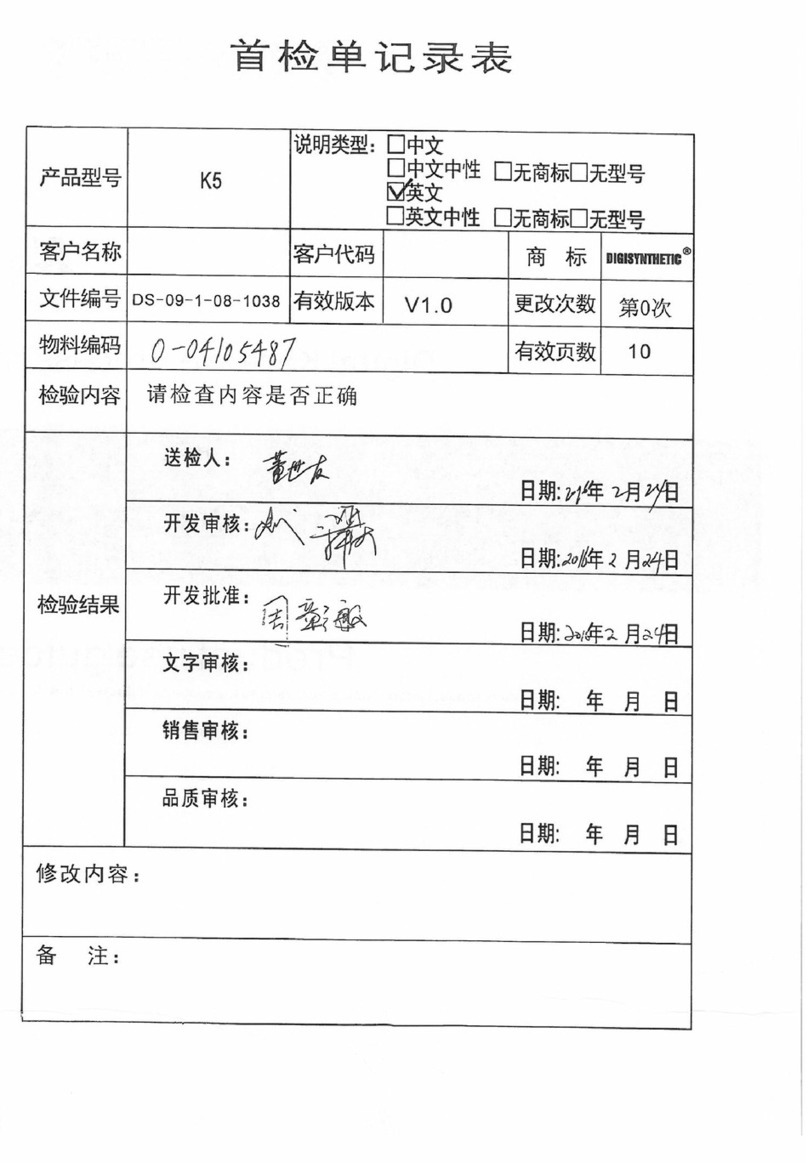 首检单记录表
产品型号 K5 说明类型： □中文
□中文中性 □无商标□无型号
☑英文
□英文中性 □无商标□无型号
客户名称 客户代码 商 标 DIGISYNTHETIC®
文件编号 DS-09-1-08-1038 有效版本 V1.0 更改次数 第0次
物料编码 0-04105487 有效页数 10
检验内容 请检查内容是否正确
检验结果
送检人： 董世友
日期: 年 2月24日
开发审核：
日期:2016年2月24日
开发批准： 周
日期:2016年2月24日
文字审核：
日期: 年 月 日
销售审核：
日期: 年 月 日
品质审核：
日期: 年 月 日
修改内容：
备 注：